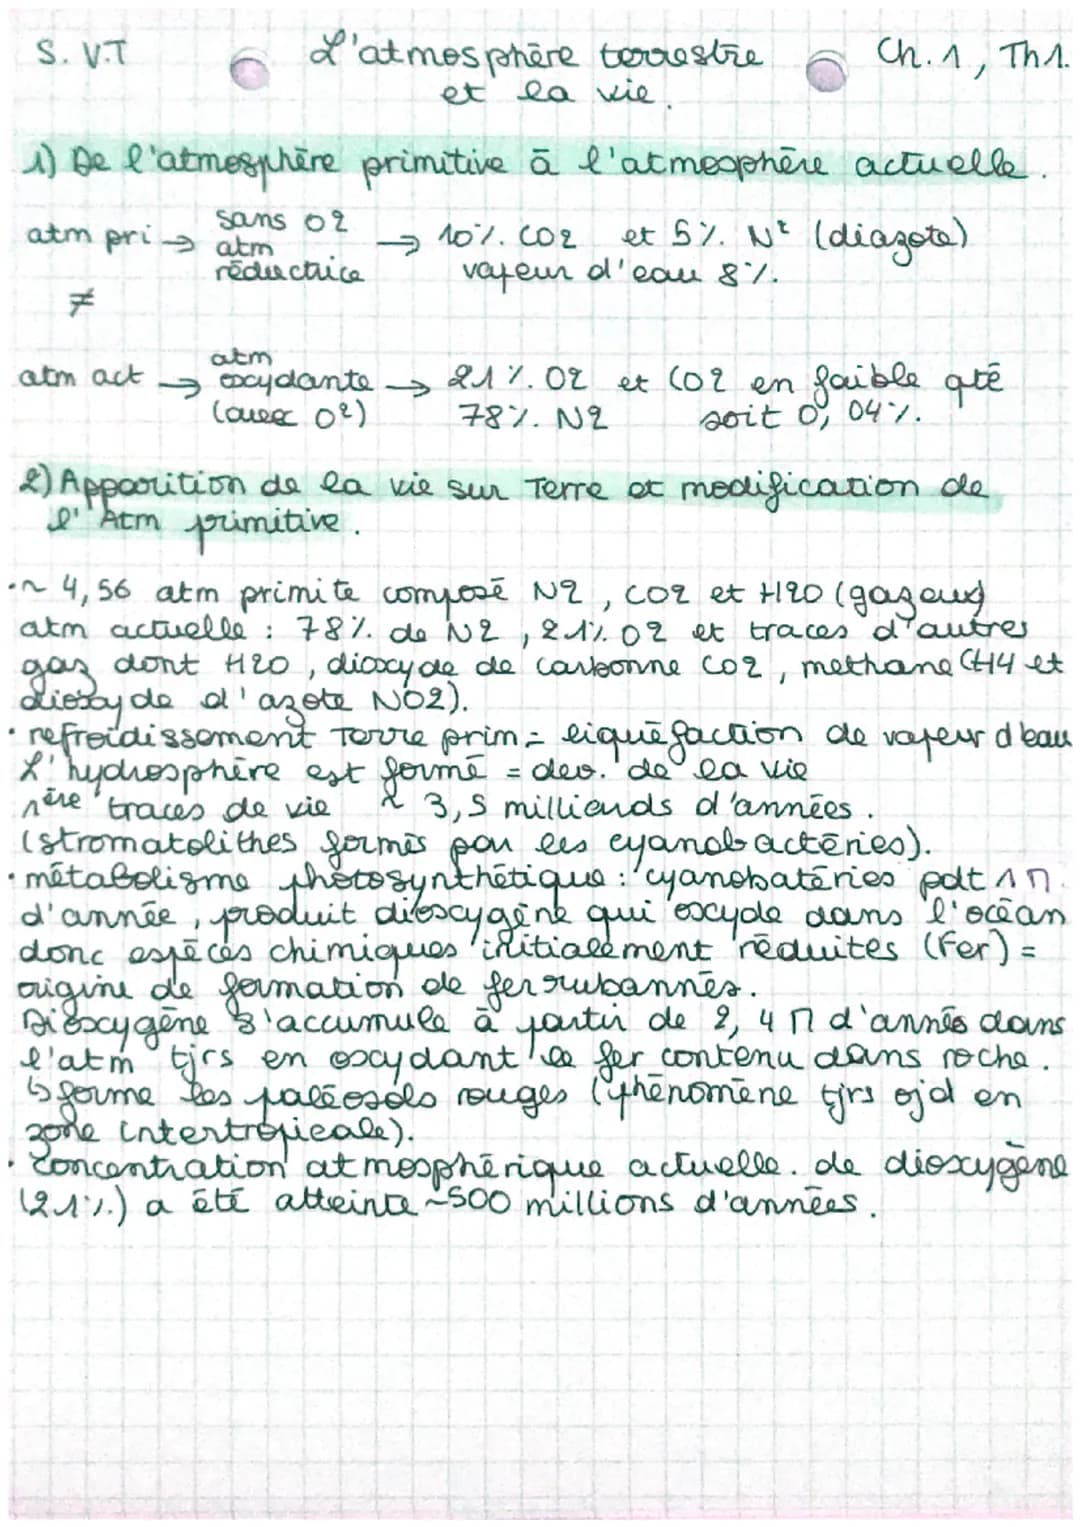 S. V.T
L'atmosphère terrestre
et la vie.
Ch. 1, Th1.
1) De l'atmosphère primitive à l'atmosphère actuelle.
atm pri → sans O2
atm
réductrice
→ 10% CO2 et 5% N² (diazote)
vapeur d'eau 8%.
≠
atm act → atm
oxydante
(avec O²)
→ 21% O2 et CO2 en faible qté
78% N2 soit 0,04%.
2) Apparition de la vie sur Terre et modification de
l'Atm primitive.
• ~ 4,56 atm primite composé N2, CO2 et H2O (gazeux)
atm actuelle : 78% de N2, 21% O2 et traces d'autres
gaz dont H2O, dioxyde de carbonne CO2, methane CH4 et
dioxyde d'azote NO2).
• refroidissement Terre prim = liquéfaction de vapeur d'eau
L'hydrosphère est formé = dev. de la vie
1ère traces de vie ~ 3,5 milliards d'années.
(stromatolithes formés par les cyanobactéries).
• métabolisme photosynthétique : cyanobatéries pdt 1 M.
d'année, produit dioxygène qui oxyde dans l'océan
donc espèces chimiques initialement réduites (Fer) =
origine de formation de fer rubannés.
Dioxygène s'accumule à partir de 2,4 M d'annés dans
l'atm tjrs en oxydant le fer contenu dans roche.
↳ forme les paléosols rouges (phénomène tjrs ojd en
zone intertropicale).
• Concentration atmosphérique actuelle. de dioxygène
(21%) a été atteinte ~500 millions d'années.